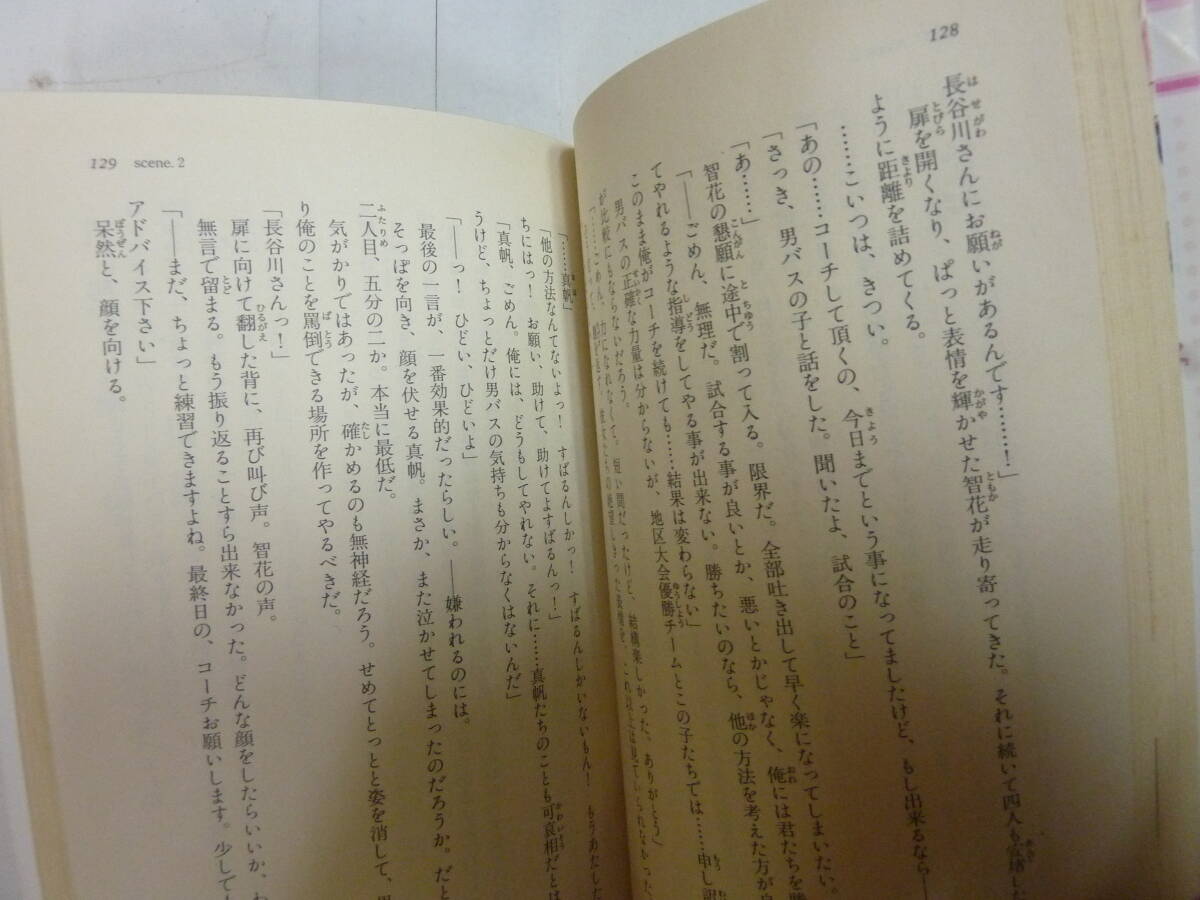 128
長谷川さんにお願いがあるんです……!」
扉を開くなり、ぱっと表情を輝かせた智花が走り寄ってきた。それに続いて四人も
ように距離を詰めてくる。
……こいつは、きつい。
「あの……コーチして頂くの、今日までという事になってましたけど、もし出来るなら――
「さっき、男バスの子と話をした。聞いたよ、試合のこと」
「あ……」
智花の懇願に途中で割って入る。限界だ。全部吐き出して早く楽になってしまいたい。
「――ごめん、無理だ。試合する事が良いとか、悪いとかじゃなく、俺には君たちを勝
てやれるような指導をしてやる事が出来ない。勝ちたいのなら、他の方法を考えた方が
このまま俺がコーチを続けても……結果は変わらない」
男バスの正確な力量は分からないが、地区大会優勝チームとこの子たちでは……申し訳
が比較にもならないだろう。
「……ごめん、力になれなくて。短い間だったけど、結構楽しかった。ありがとう」
129 scene. 2
「……真帆」
「他の方法なんてないよっ! すばるんしかっ! すばるんしかいないもん! もうあたした
ちにはっ! お願い、助けて、助けてよすばるんっ!」
「真帆、ごめん。俺には、どうもしてやれない。それに……真帆たちのことも可哀相だとは
うけど、ちょっとだけ男バスの気持ちも分からなくはないんだ」
「――っ! ひどい、ひどいよ」
最後の一言が、一番効果的だったらしい。――嫌われるのには。
そっぽを向き、顔を伏せる真帆。まさか、また泣かせてしまったのだろうか。だと
二人目、五分の二か。本当に最低だ。
気がかりではあったが、確かめるのも無神経だろう。せめてとっとと姿を消して、
り俺のことを罵倒できる場所を作ってやるべきだ。
「長谷川さんっ!」
扉に向けて翻した背に、再び叫び声。智花の声。
無言で留まる。もう振り返ることすら出来なかった。どんな顔をしたらいいか、わ
「――まだ、ちょっと練習できますよね。最終日の、コーチお願いします。少しでも
アドバイス下さい」
呆然と、顔を向ける。